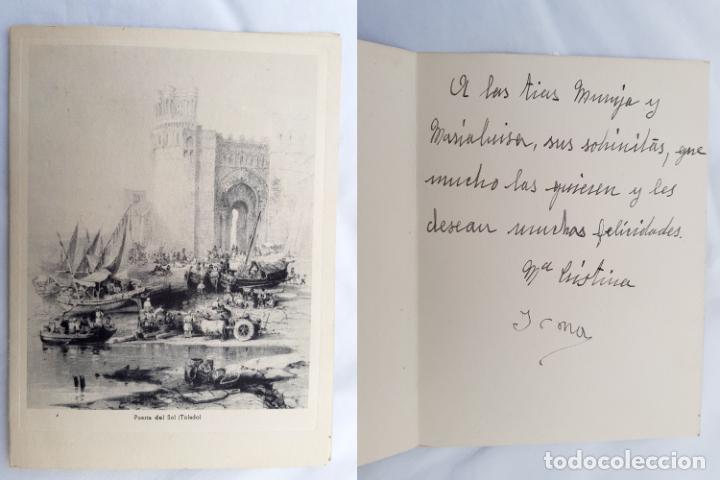 Puerta del Sol (Toledo)
A las tias Muruja y
Marialuisa, sus sobinitas, que
mucho las quieren y les
desean muchas felicidades.
Mª Cristina
todocoleccion.net